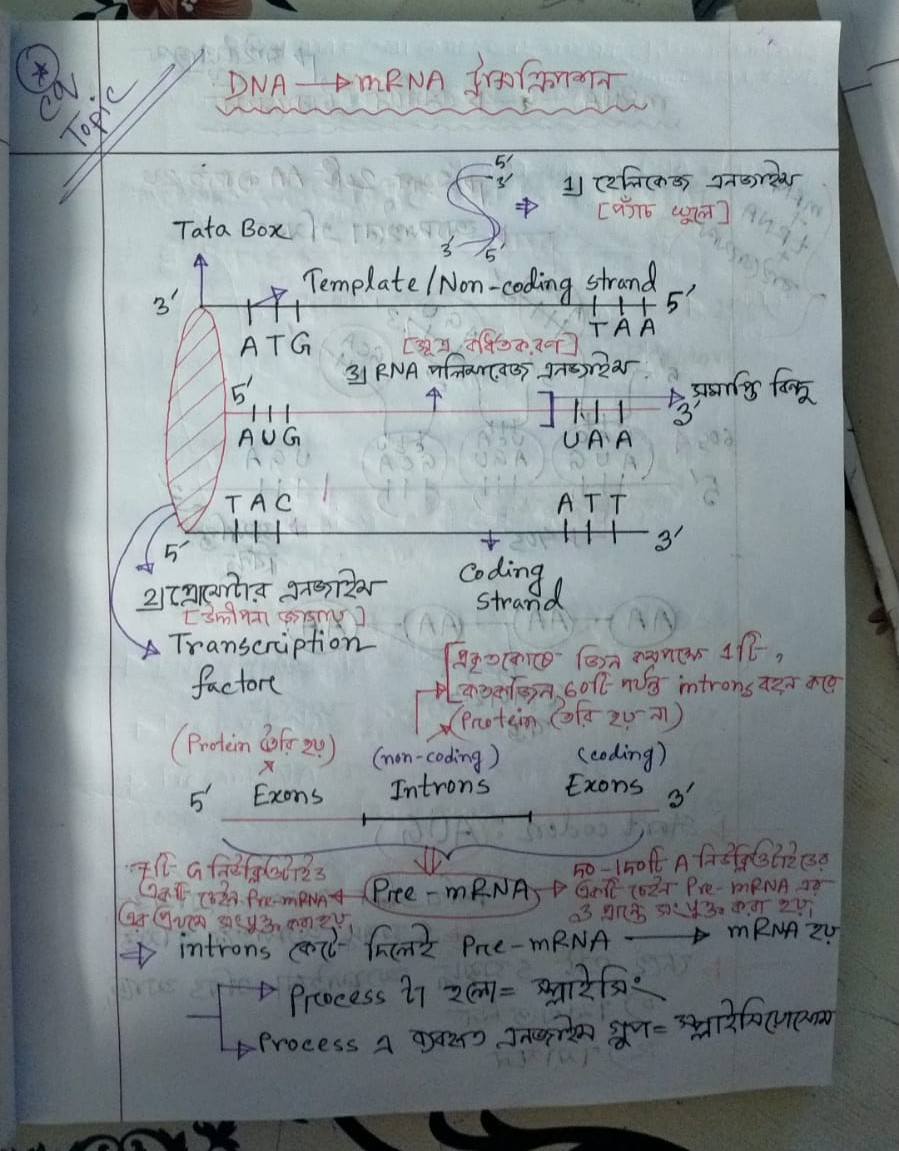 CQ
Topic
DNA → mRNA ট্রান্সক্রিপশন
5'
3'
3'
5'
⇒ 1) হেলিকেজ এনজাইম
[প্যাঁচ খুলে]
Tata Box
Template/Non-coding strand
3'
5'
A T G
T A A
[সূত্র বর্ধিতকরণ]
3) RNA পলিমারেজ এনজাইম
5'
3'
সমাপ্তি বিন্দু
A U G
U A A
T A C
A T T
5'
3'
2) প্রোমোটার এনজাইম
Coding
strand
Transcription
factor
[প্রকৃতকোষে জিন কমপক্ষে 1টি,
60টি পর্যন্ত introns বহন করে
(Protein তৈরি হয় না)
(Protein তৈরি হয়)
(non-coding)
(coding)
5' Exons Introns Exons 3'
7টি G নিউক্লিওটাইড
একটি চেইন Pre-mRNA
এর প্রথমে সংযুক্ত করা হয়
Pre-mRNA
50-150টি A নিউক্লিওটাইডের
একটি চেইন Pre-mRNA এর
3 প্রান্তে সংযুক্ত করা হয়
⇒ introns কেটে দিলেই Pre-mRNA → mRNA হয়
Process টা হলো= স্প্লাইসিং
Process এ ব্যবহৃত এনজাইম গ্রুপ= স্প্লাইসিওসোম